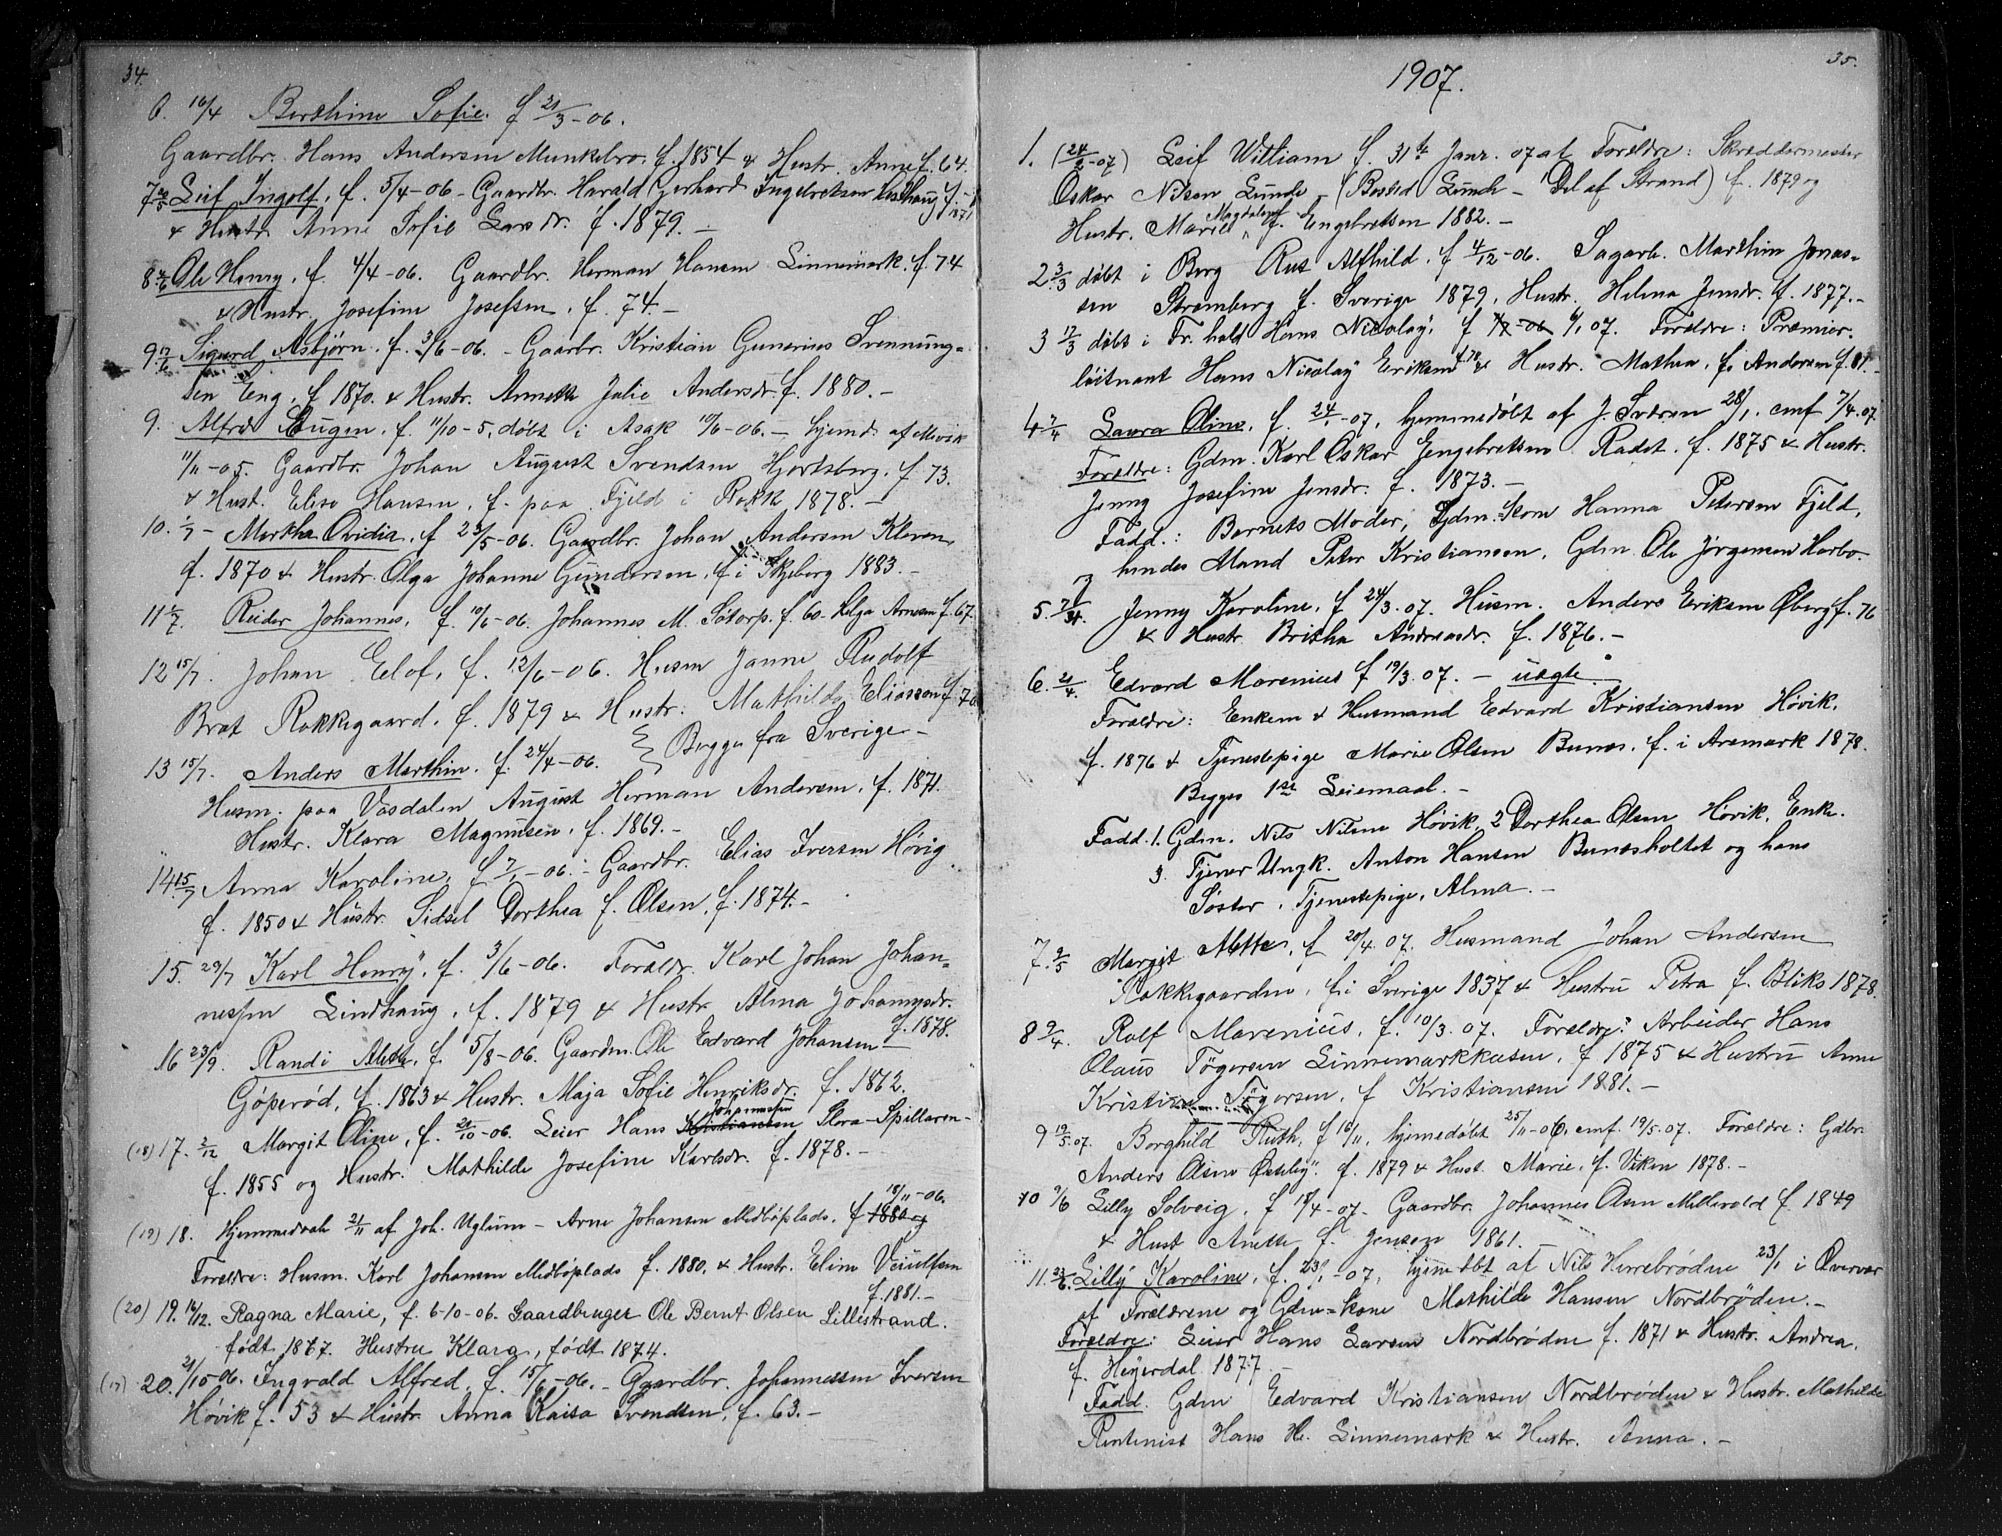 34.
6. 16/4 Berthine Sofie. f 21/3-06.
Gaardbr. Hans Andersen Munkebro. f. 1854 & Hustr. Anne f. 64.
7 Leif Ingolf, f. 5/4-06 - Gaardbr. Harald Gerhard Ingebretsen f. 1871
& Hustr. Anne Sofie Larsdr. f. 1879. -
8 Ole Henry, f. 4/4-06. Gaardbr. Herman Hansen Linnemark. f. 74
& Hustr. Josefine Josefsen, f. 74. -
9 17/6 Sigurd Asbjørn. f. 3/6-06. - Gaarbr. Kristian Gunerius Svenning=
sen Eng, f 1870. & Hustr. Annette Julie Andersdr. f. 1880. -
9. Alfred Eugen, f. 11/10-5, døbt i Asak 10/6-06. - hjemd. af
11/11-05. Gaardbr. Johan August Svendsen Hjortsberg. f. 73.
& Hust. Elise Hansen, f. paa Fjeld i Rokk, 1878. -
10. 1/7 - Martha Ovidia, f 23/5-06. Gaardbr. Johan Andersen Kleven,
f. 1870 & Hustr. Olga Johanne Gundersen, f. i Skjeberg 1883. -
11 1/7. Reidar Johannes, f. 10/6-06. Johannes M. Sotorp. f. 60. Helga Arnesen f. 67.
12 15/7. Johan Elof, f. 12/6-06. Husm Janne Rudolf
Brat Rokkegaard. f. 1879 & Hustr: Mathilda Eliasson f.
13 15/7. Anders Marthin. f. 24/4-06. Begge fra Sverige -
Husm. paa Vasdalen August Herman Andersen, f. 1871.
Hustr. Klara Magnusen, f. 1869. -
14 15/7 Anna Karoline, f -06. - Gaardbr. Elias Iversen Høvig
f. 1850 & Hustr. Sidsel Dorthea f. Olsen, f. 1874. -
15. 29/7 Karl Henry, f. 3/6-06. Foreldr. Karl Johan Johan=
nessen Lindhaug, f. 1879 & Hustr. Alma Johannsdr.
f. 1878.
16 23/9. Randi Alette, f. 5/8-06. Gaardm. Ole Edvard Johansen
Göperød, f. 1863 & Hustr. Maja Sofie Henriksdr. f. 1862.
(18) 17. 2/12 Margit Oline, f. 21/10-06. Leier Hans Kristiansen Johannesen Flora-Spillaren-
f. 1855 og Hustr. Mathilde Josefine Karlsdr. f. 1878. -
(19) 18. Hjemmedøb 21/11 af Joh. Uglum - Arne Johansen Midbøplads. f 18/11-06. 1880 og
Foreldre: Husm. Karl Johansen Midbøplads f. 1880, & Hustr. Eline
f. 1881. -
(20) 19. 16/12. Ragna Marie, f. 6-10-06. Gaardbruger Ole Bernt Olsen Lillestrand.
født 1867. Hustru Klara, født 1874.
(17) 20. 21/10 06. Ingvald Alfred. f. 15/6-06. - Gaardbr. Johannessen Iversen
Høvik f. 53 & Hustr. Anna Kaisa Svendsen, f. 63. -
35.
1907.
1. (24/2-07) Leif William f. 31te Janr. 07 at Foreldre: Skreddermester
Oskar Nilsen Lunde - (Bosted Lunde - Del af Strand) f. 1879 og
Hustr. Marie Magdalene f. Engebretsen 1882. -
2 3/3 døbt i Berg Rut Alfhild, f 4/12-06. Sagarb. Marthin Jonas=
sen Strømberg f. Sverige 1879, Hustr. Helma Jensdr. f. 1877. -
3 17/3 døbt i Fr.hald Hans Nicolay, f 6/1 07. Foreldre: Premier=
løitnant Hans Nicolay Eriksen f 78 & Hustr. Mathea, f. Andersen f. 81. -
4 7/4 Laura Oline, f. 24/1-07, hjemmedøbt af J. Sværen 28/1. cmf 7/4-07
Foreldre: Gdm. Karl Oskar Engebretsen Radet. f. 1875 & Hustr.
Jenny Josefine Jensdr. f. 1873. -
Fadd.: Barnets Moder, Gdm.Kone Hanna Petersen Fjeld,
hendes Mand Peter Kristiansen, Gdm. Ole Jørgensen Harbo-
5. 7/4. Jenny Karoline, f 24/3.07. Husm. Anders Eriksen Øberg f. 76
& Hustr. Britha Andreasdr. f. 1876. -
6. 21/4. Edvard Marenius f 19/3.07. - uægte.
Foreldre: Enkem & Husmand Edvard Kristiansen Høvik.
f. 1876 & Tjenestepige Marie Olsen Bunæs. f. i Aremark 1878.
Begges 1ste Leiemaal. -
Fadd. 1. Gdm. Nils Nilsen Høvik, 2 Dorthea Olsen Høvik, Enke.
3. Tjener Ungk. Anton Hansen Bunæsholtet og hans
Søster, Tjenestepige, Alma. -
7. 9/5 Margit Mette, f 20/4.07. Husmand Johan Andersen
Rokkegaarden, f. i Sverige 1837 & Hustru Petra f. Bliks 1878.
8 9/4. Rolf Marenius, f. 10/3.07. Foreldre: Arbeider Hans
Olaus Tögersen Linnemarkkasen, f 1875 & Hustru Anne
Kristine Tögersen, f Kristiansen 1881. -
9 19/5.07. Borghild Ruth, f 16/11, hjemedøbt 25/11-06, cmf. 19/5-07. Foreldre: Gdbr.
Anders Olsen Østeby. f. 1879 & Hust. Marie, f. Viken 1878. -
10 9/6 Lilly Solveig, f 18/4-07 - Gaardbr. Johannes Olsen f. 1849
& Hust Anette f. Jensen 1861. -
11. 23/6. Lilly Karoline, f. 23/1-07, hjemdøbt af Nils Herrebrøden 23/1 i Overvær
af Foreldrene og Gdm=kone Mathilde Hansen Nordbrøden. -
Foreldre: Leier Hans Larsen Nordbrøden f. 1871 & Hustr. Andrea,
f. Heyerdal 1877. -
Fadd. Gdm Edvard Kristiansen Nordbrøden & Hustr. Mathilde
Rentenist Hans H. Linnemark & Hustr. Anna. -